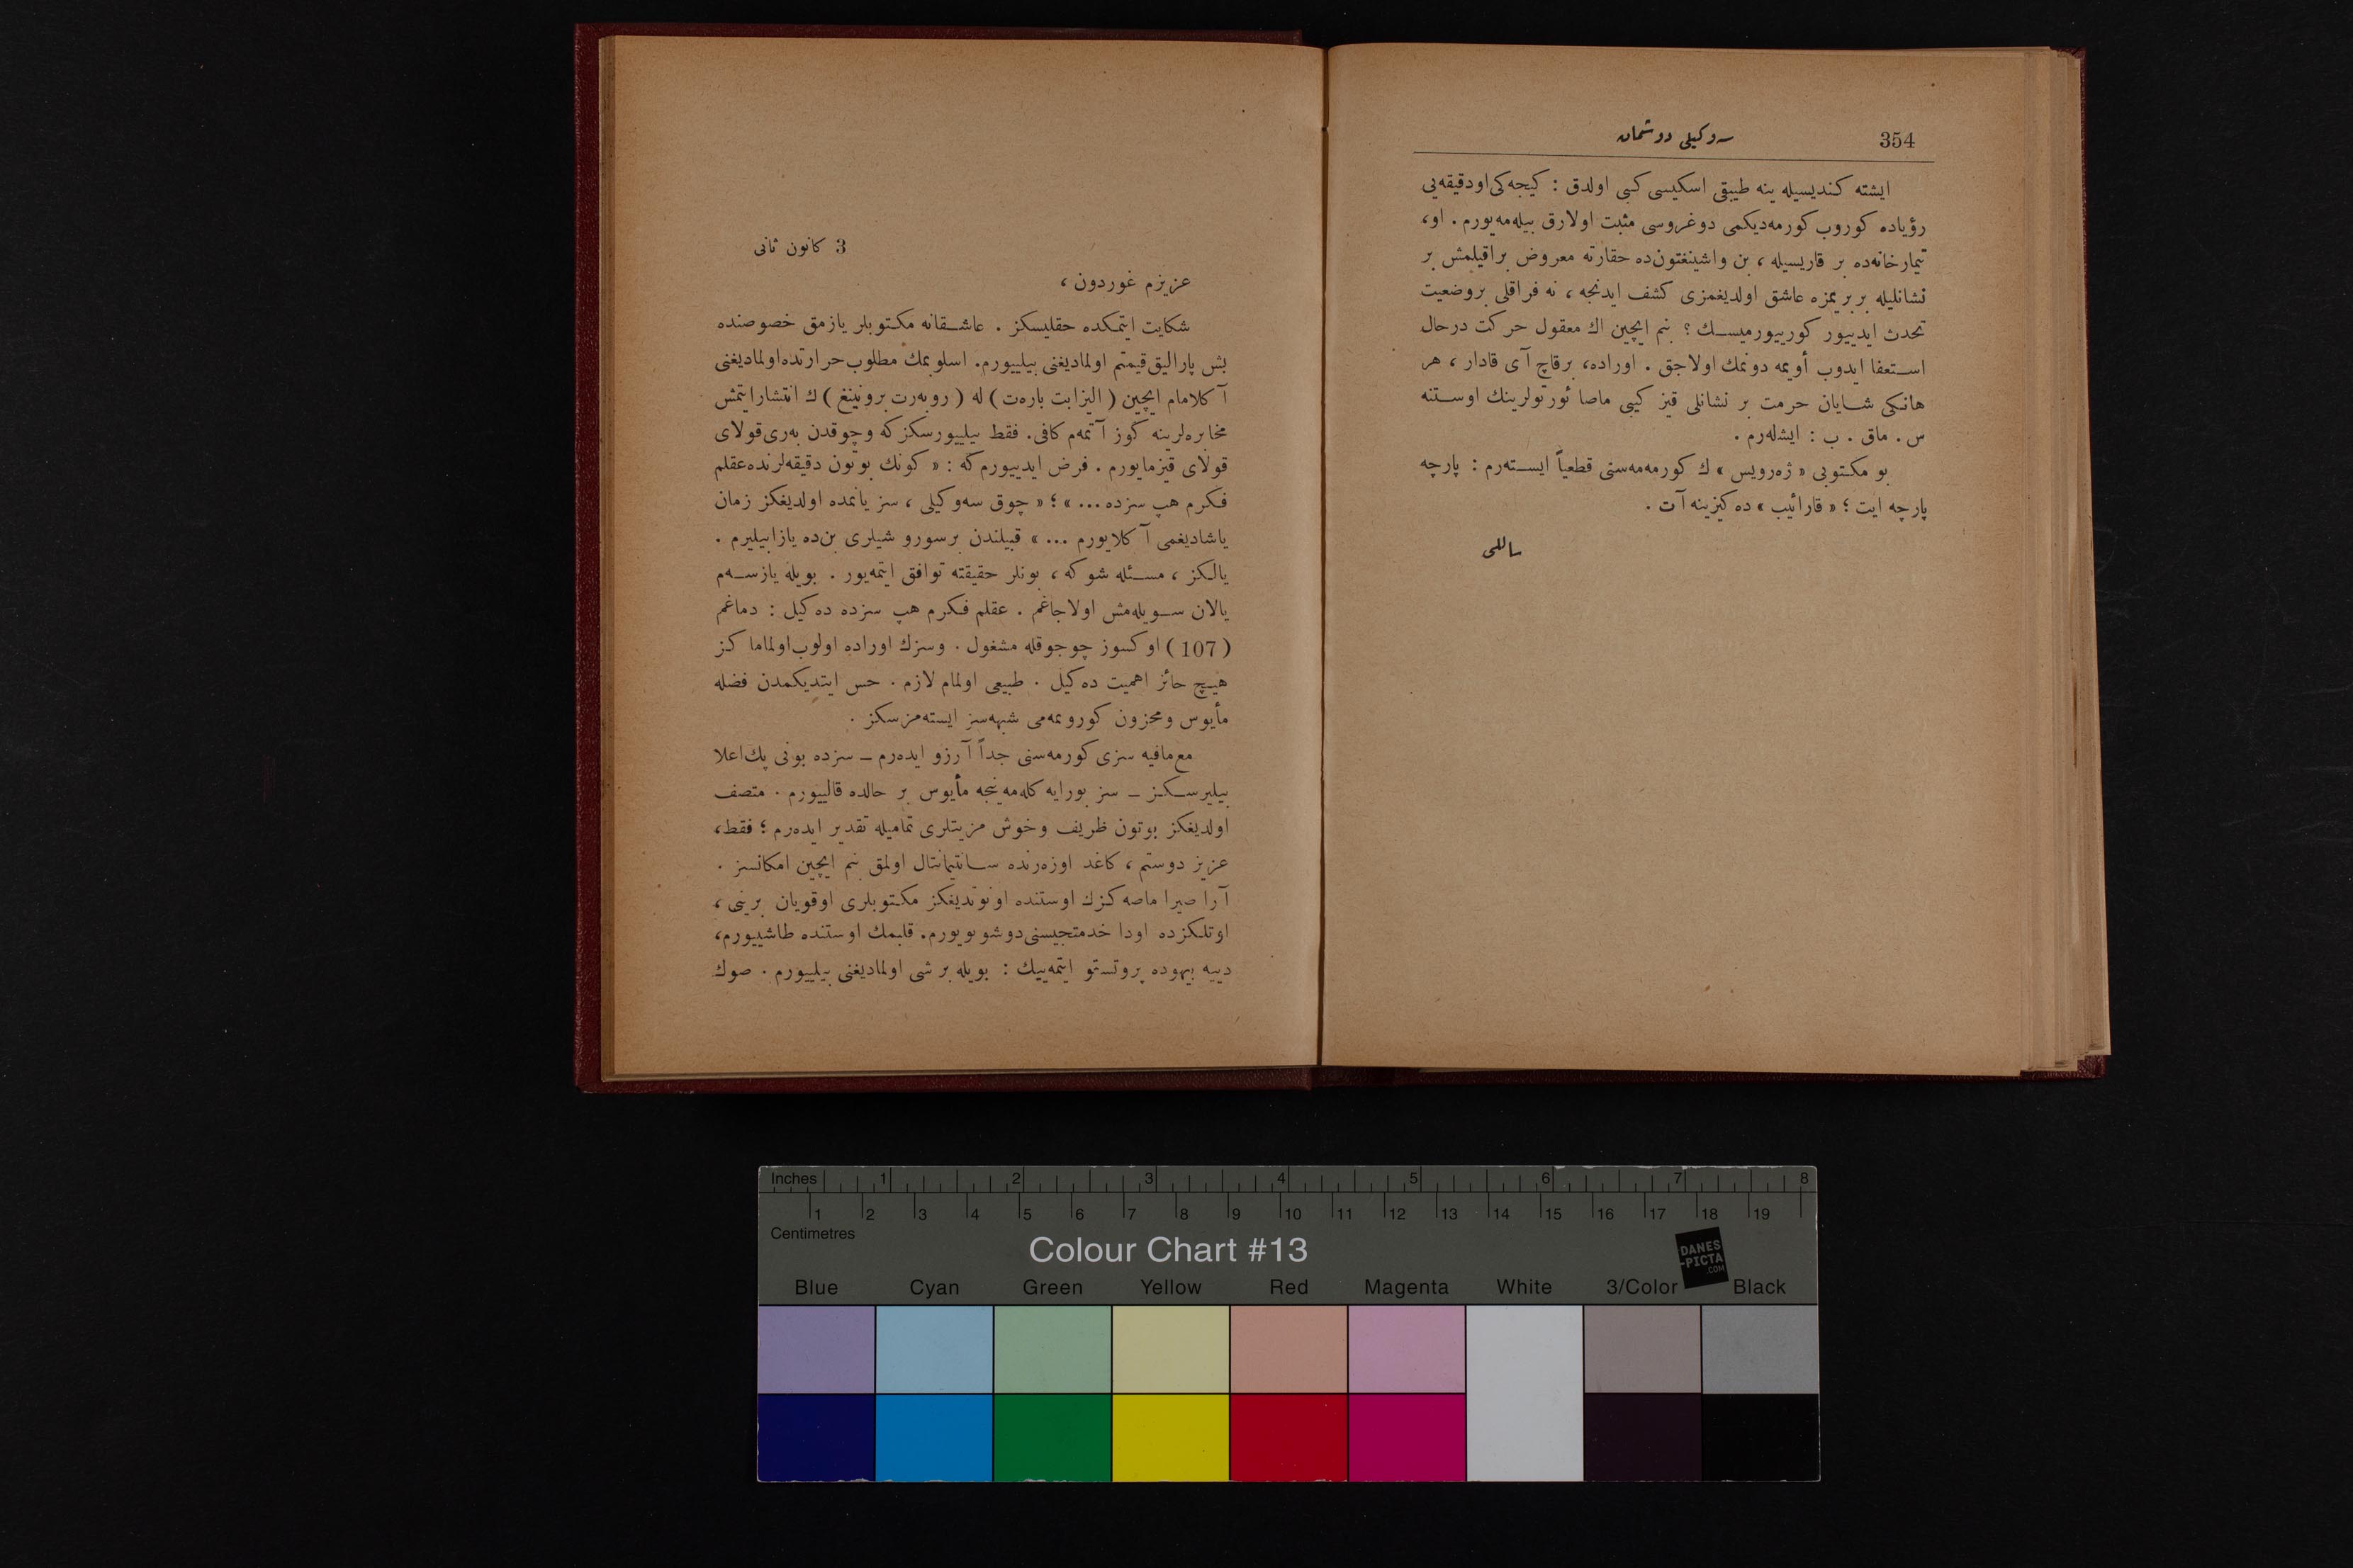 354
سه‌وكيلی دوشمان
ايشته كنديسيله ينه طيبقی اسكيسی كبی اولدق : كيجه‌كی اودقيقه‌يی
رؤياده كوروب كورمه‌ديكمی دوغروسی مثبت اولارق بيله‌مه‌يورم . او،
تيمارخانه‌ده بر قاريسيله ، بن واشينغتون‌ده حقارته معروض براقيلمش بر
نشانليله بربريمزه عاشق اولديغمزی كشف ايدنجه ، نه فراقلی بروضعيت
تحدث ايدييور كورييورميسك ؟ بنم ايچين اك معقول حركت درحال
استعفا ايدوب أويمه دونمك اولاجق . اوراده، برقاچ آی قادار ، هر
هانكی شايان حرمت بر نشانلی قيز كيبی ماصا ئورتولرينك اوستنه
س . ماق . ب : ايشله‌رم .
بو مكتوبی « ژه‌رويس » ك كورمه‌مه‌سنی قطعياً ايسته‌رم : پارچه
پارچه ايت ؛ « قارائيب » ده‌كيزينه آت .
ساللی
3 كانون ثانی
عزيزم غوردون ،
شكايت ايتمكده حقليسكز . عاشقانه مكتوبلر يازمق خصوصنده
بش پارالیق قيمتم اولماديغنی بيلييورم. اسلوبمك مطلوب حرارتده‌اولماديغنی
آكلامام ايچين ( اليزابت باره‌ت ) له ( روبه‌رت برونينغ ) ك انتشارايتمش
مخابره‌لرينه كوز آتمه‌م كافی. فقط بيلييورسكزكه وچوقدن به‌ری‌قولای
قولای قيزمايورم . فرض ايدييورم‌كه : « كونك بوتون دقيقه‌لرنده‌عقلم
فكرم هپ سزده ... » ؛ « چوق سه‌وكيلی ، سز يانمده اولديغكز زمان
ياشاديغمی آكلايورم ... » قبيلندن برسورو شيلری بن‌ده يازابيليرم .
يالكز ، مسئله شوكه ، بونلر حقيقته توافق ايتمه‌يور . بويله يازسه‌م
يالان سويله‌مش اولاجاغم . عقلم فكرم هپ سزده ده‌كيل : دماغم
( 107 ) اوكسوز چوجوقله مشغول . وسزك اوراده اولوب‌اولماماكز
هيچ حائز اهميت ده‌كيل . طبيعی اولمام لازم . حس ايتديكمدن فضله
مأيوس ومحزون كورونمه‌می شبهه‌سز ايسته‌مزسكز .
مع‌مافيه سزی كورمه‌سنی جداً آرزو ايده‌رم ــ سزده بونی پك‌اعلا
بيليرسكز ــ سز بورايه كله‌مه‌ينجه مأيوس بر حالده قالييورم . متصف
اولديغكز بوتون ظريف وخوش مزيتلری تماميله تقدير ايده‌رم ؛ فقط،
عزيز دوستم ، كاغد اوزه‌رنده سانتيمانتال اولمق بنم ايچين امكانسز .
آرا صيرا ماصه‌كزك اوستنده اونوتديغكز مكتوبلری اوقويان برينی ،
اوتلكزده اودا خدمتجيسنی‌دوشونويورم. قلبمك اوستنده طاشييورم،
دييه بيهوده پروتستو ايتمه‌ييك : بويله بر شی اولماديغنی بيلييورم . صوك
Inches 1 2 3 4 5 6 7 8
1 2 3 4 5 6 7 8 9 10 11 12 13 14 15 16 17 18 19
Centimetres
Colour Chart #13
DANES
-PICTA
.COM
Blue Cyan Green Yellow Red Magenta White 3/Color Black